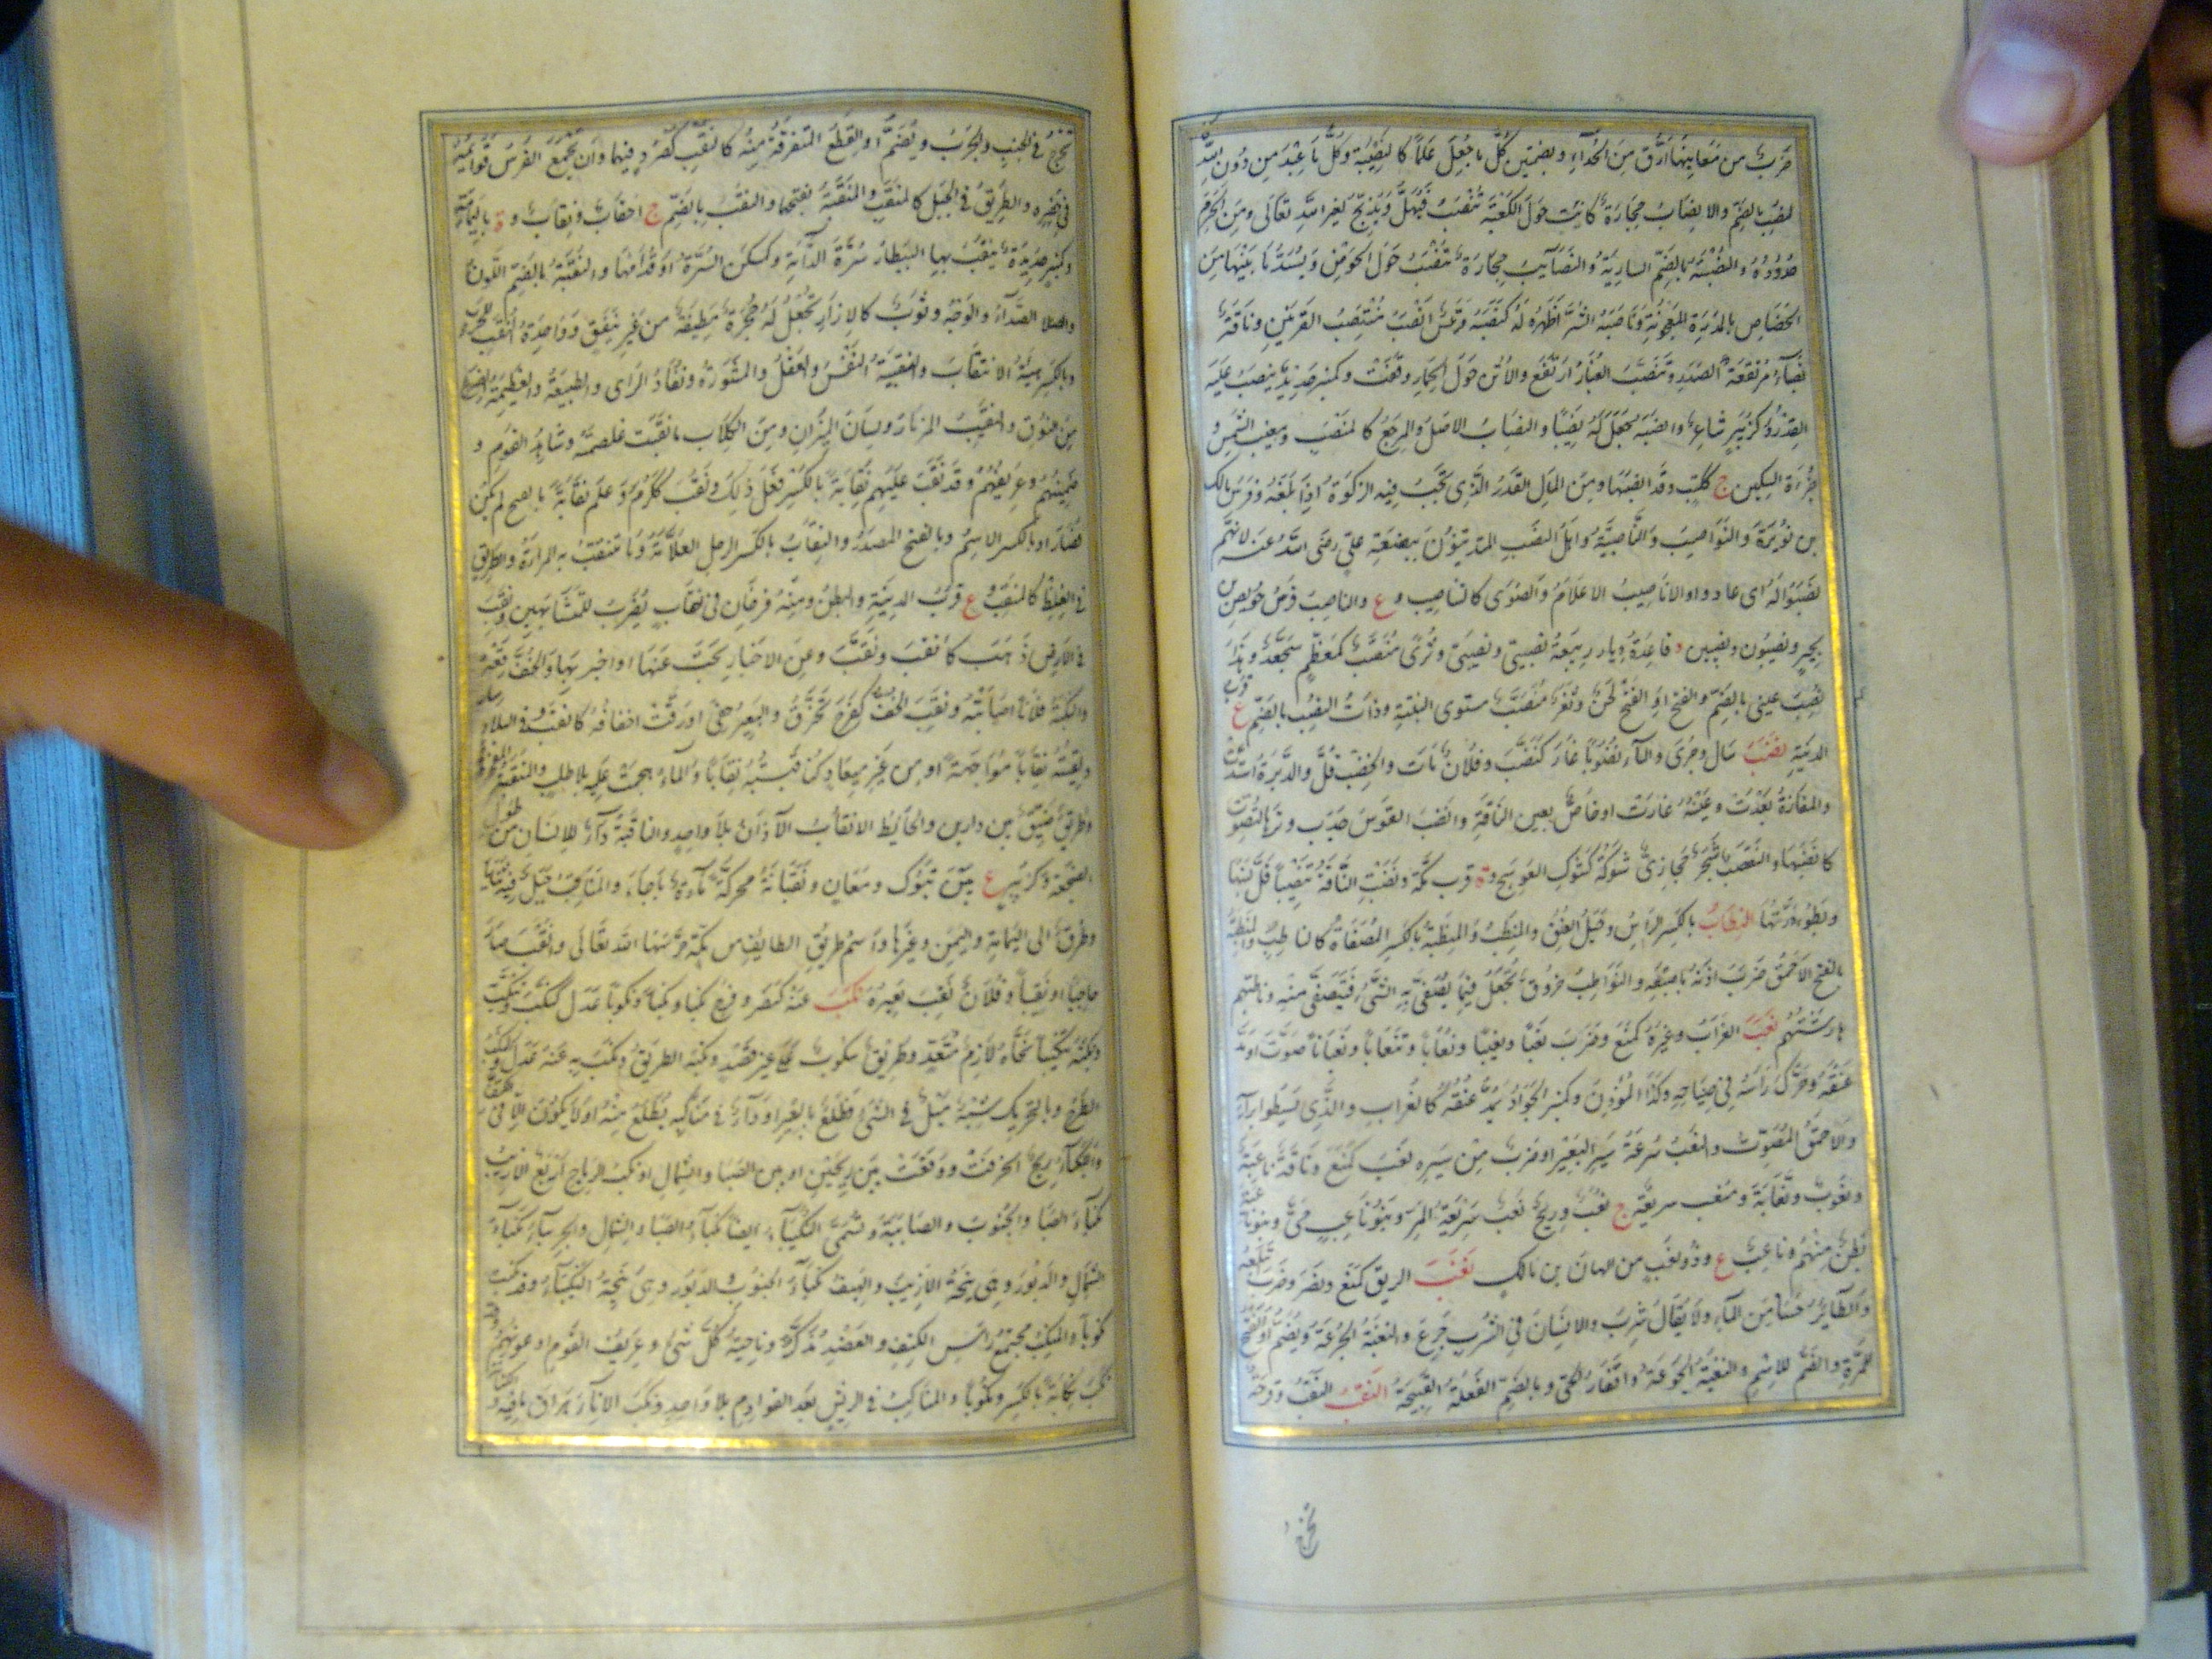 ضرب من مغانيها ارق من الحداء وبضمتين كل ما جعل علما كالنصيبة وكل ما عبد من دون الله
كالنصب بالضم والانصاب حجارة كانت حول الكعبة تنصب فيهل ويذبح لغير الله تعالى ومن الحرم
حدوده والنصبة بالضم السارية والنصائب حجارة تنصب حول الحوض ويسد ما بينها من
الخصاص بالمدرة المعجونة وناصبه الشر اظهره له كنصبه وتيس انصب منتصب القرنين وناقة
نصباء مرتفعة الصدر وتنصب الغبار ارتفع والاتن حول الحمار وقفت وكمنبر حديد ينصب عليه
القدر وكزبير شاعر وانصبه جعل له نصيبا والنصاب الاصل والمرجع كالمنصب ومغيب الشمس و
جزأة السكين ج ككتب وقد انصبها ومن المال القدر الذي تجب فيه الزكوة اذا بلغه وفرس مالك
بن نويرة والنواصب والناصبية واهل النصب المتدينون ببغضة علي رضي الله عنه لانهم
نصبوا له اي عادوه والاناصيب الاعلام والصوى كالتناصيب وع والناصب فرس حويص بن
بجير ونصيبون ونصيبين د قاعدة ديار ربيعة نصيبي ونصيبيني وثرى منصب كمعظم مجعد وهذا
نصب عيني بالضم والفتح او الفتح لحن وثغر منصب مستوى النبتة وذات النصب بالضم ع قرب
المدينة نضب سال وجرى والماء نضوبا غار كنضب وفلان مات والخصب قل والدبرة اشتدت
والمفازة بعدت وعينه غارت او خاص بعين الناقة وانضب القوس جذب وترها لتصوت
كانبضها والتنضب شجر حجازي شوكه كشوك العوسج وة قرب مكة ونضبت الناقة تنضيبا قل لبنها
وبطؤ درتها النطاب بالكسر الراس وحبل العنق والمنطب والمنطبة بالكسر المصفاة كالناطب والمنطبة
بالفتح الاحمق ضرب اذنه باصبعه والنواطب خروق تجعل فيما يصفى به الشيء فيتصفى منه وناطبهم
هارشهم نعب الغراب وغيره كمنع وضرب نعبا ونعيبا ونعابا وتنعابا ونعبانا صوت او مد
عنقه وحرك راسه في صياحه وكذا المؤذن وكمنبر الجواد يمد عنقه كالغراب والذي يسطو براسه
والاحمق المصوت والنعب سرعة سير البعير او ضرب من سيره نعب كمنع وناقة ناعبة
ونعوب ونعابة ومنعب سريعة ج نعب وريح نعب سريعة المر وبنو ناعب حي وبنو ناعبة
بطن منهم وناعب ع وذو نعب من الهان بن مالك نغب الريق كمنع ونصر وضرب ابتلعه
والطائر حسا من الماء ولا يقال شرب والانسان في الشرب جرع والنغبة الجرعة ويضم او الفتح
للمرة والضم للاسم والنغبة الجوعة واقفار الحي وبالضم الفعلة القبيحة النقب الثقب وقرحة
تخرج
تخرج في الجنب والجرب ويضم او القطع المتفرقة منه كالنقب كصرد فيهما وان يجمع الفرس قوائمه
في حضره والطريق في الجبل كالمنقب والمنقبة بفتحهما والنقب بالضم ج انقاب ونقاب وة باليمامة
وكمنبر حديدة ينقب بها البيطار سرة الدابة وكمسكن السرة او قدامها والنقبة بالضم اللون
والصدأ والوجه وثوب كالازار تجعل له حجزة مطيفة من غير نيفق وواحدة النقب للجرب
وبالكسر هيئة الانتقاب والنقيبة النفس والعقل والمشورة ونفاذ الراي والطبيعة والعظيمة الضرع
من النوق والنقيب المزمار ولسان الميزان ومن الكلاب ما نقبت غلصمته وشاهد القوم و
ضمينهم وعريفهم وقد نقب عليهم نقابة بالكسر فعل ذلك ونقب ككرم وعلم نقابة بالفتح لم يكن
فصار او بالكسر الاسم وبالفتح المصدر والنقاب بالكسر الرجل العلامة وما تنتقب به المراة والطريق
في الغلظ كالمنقب وع قرب المدينة والبطن ومنه فرخان في نقاب يضرب للمتشابهين ونقب
في الارض ذهب كانقب ونقب وعن الاخبار بحث عنها او اخبر بها والخف رقعه
والنكبة فلانا اصابته ونقب الخف كفرح تخرق والبعير حفي او رقت اخفافه كانقب وفي البلاد سار
ولقيته نقابا مواجهة او من غير ميعاد كناقبته نقابا والماء هجمت عليه بلا طلب والمنقبة المفخرة
وطريق ضيق بين دارين والحائط الانقاب الآذان بلا واحد والناقبة داء للانسان من طول
الضجعة وكزبير ع بين تبوك ومعان ونقبانة محركة ماءة باجا والمناقب جبل فيه ثنايا
وطرق الى اليمامة واليمن وغيرها واسم طريق الطائف من مكة حرسها الله تعالى وانقب صار
حاجبا او نقيبا وفلان نقب بعيره نكب عنه كنصر وفرح نكبا ونكبا ونكوبا عدل كنكب وتنكب
ونكبه تنكيبا نحاه لازم متعد وطريق ينكوب على غير قصد ونكبه الطريق ونكب به عنه عدل والنكب
الطرح وبالتحريك شبه ميل في الشيء وظلع بالبعير او داء في مناكبه يظلع منه او لا يكون الا في الكتف
والنكباء ريح انحرفت ووقعت بين ريحين او بين الصبا والشمال او نكب الرياح اربع الازيب
نكباء الصبا والجنوب والصابية وتسمى النكيباء ايضا نكباء الصبا والشمال والجربياء نكباء
الشمال والدبور وهي نيحة الازيب والهيف نكباء الجنوب والدبور وهي نيحة النكيباء وقد نكبت
نكوبا والمنكب مجتمع راس الكتف والعضد مذكر وناحية كل شيء وعريف القوم او عونهم وقد
نكب نكابة بالكسر ونكوبا والمناكب في الريش بعد القوادم بلا واحد ونكب الاناء هراق ما فيه و